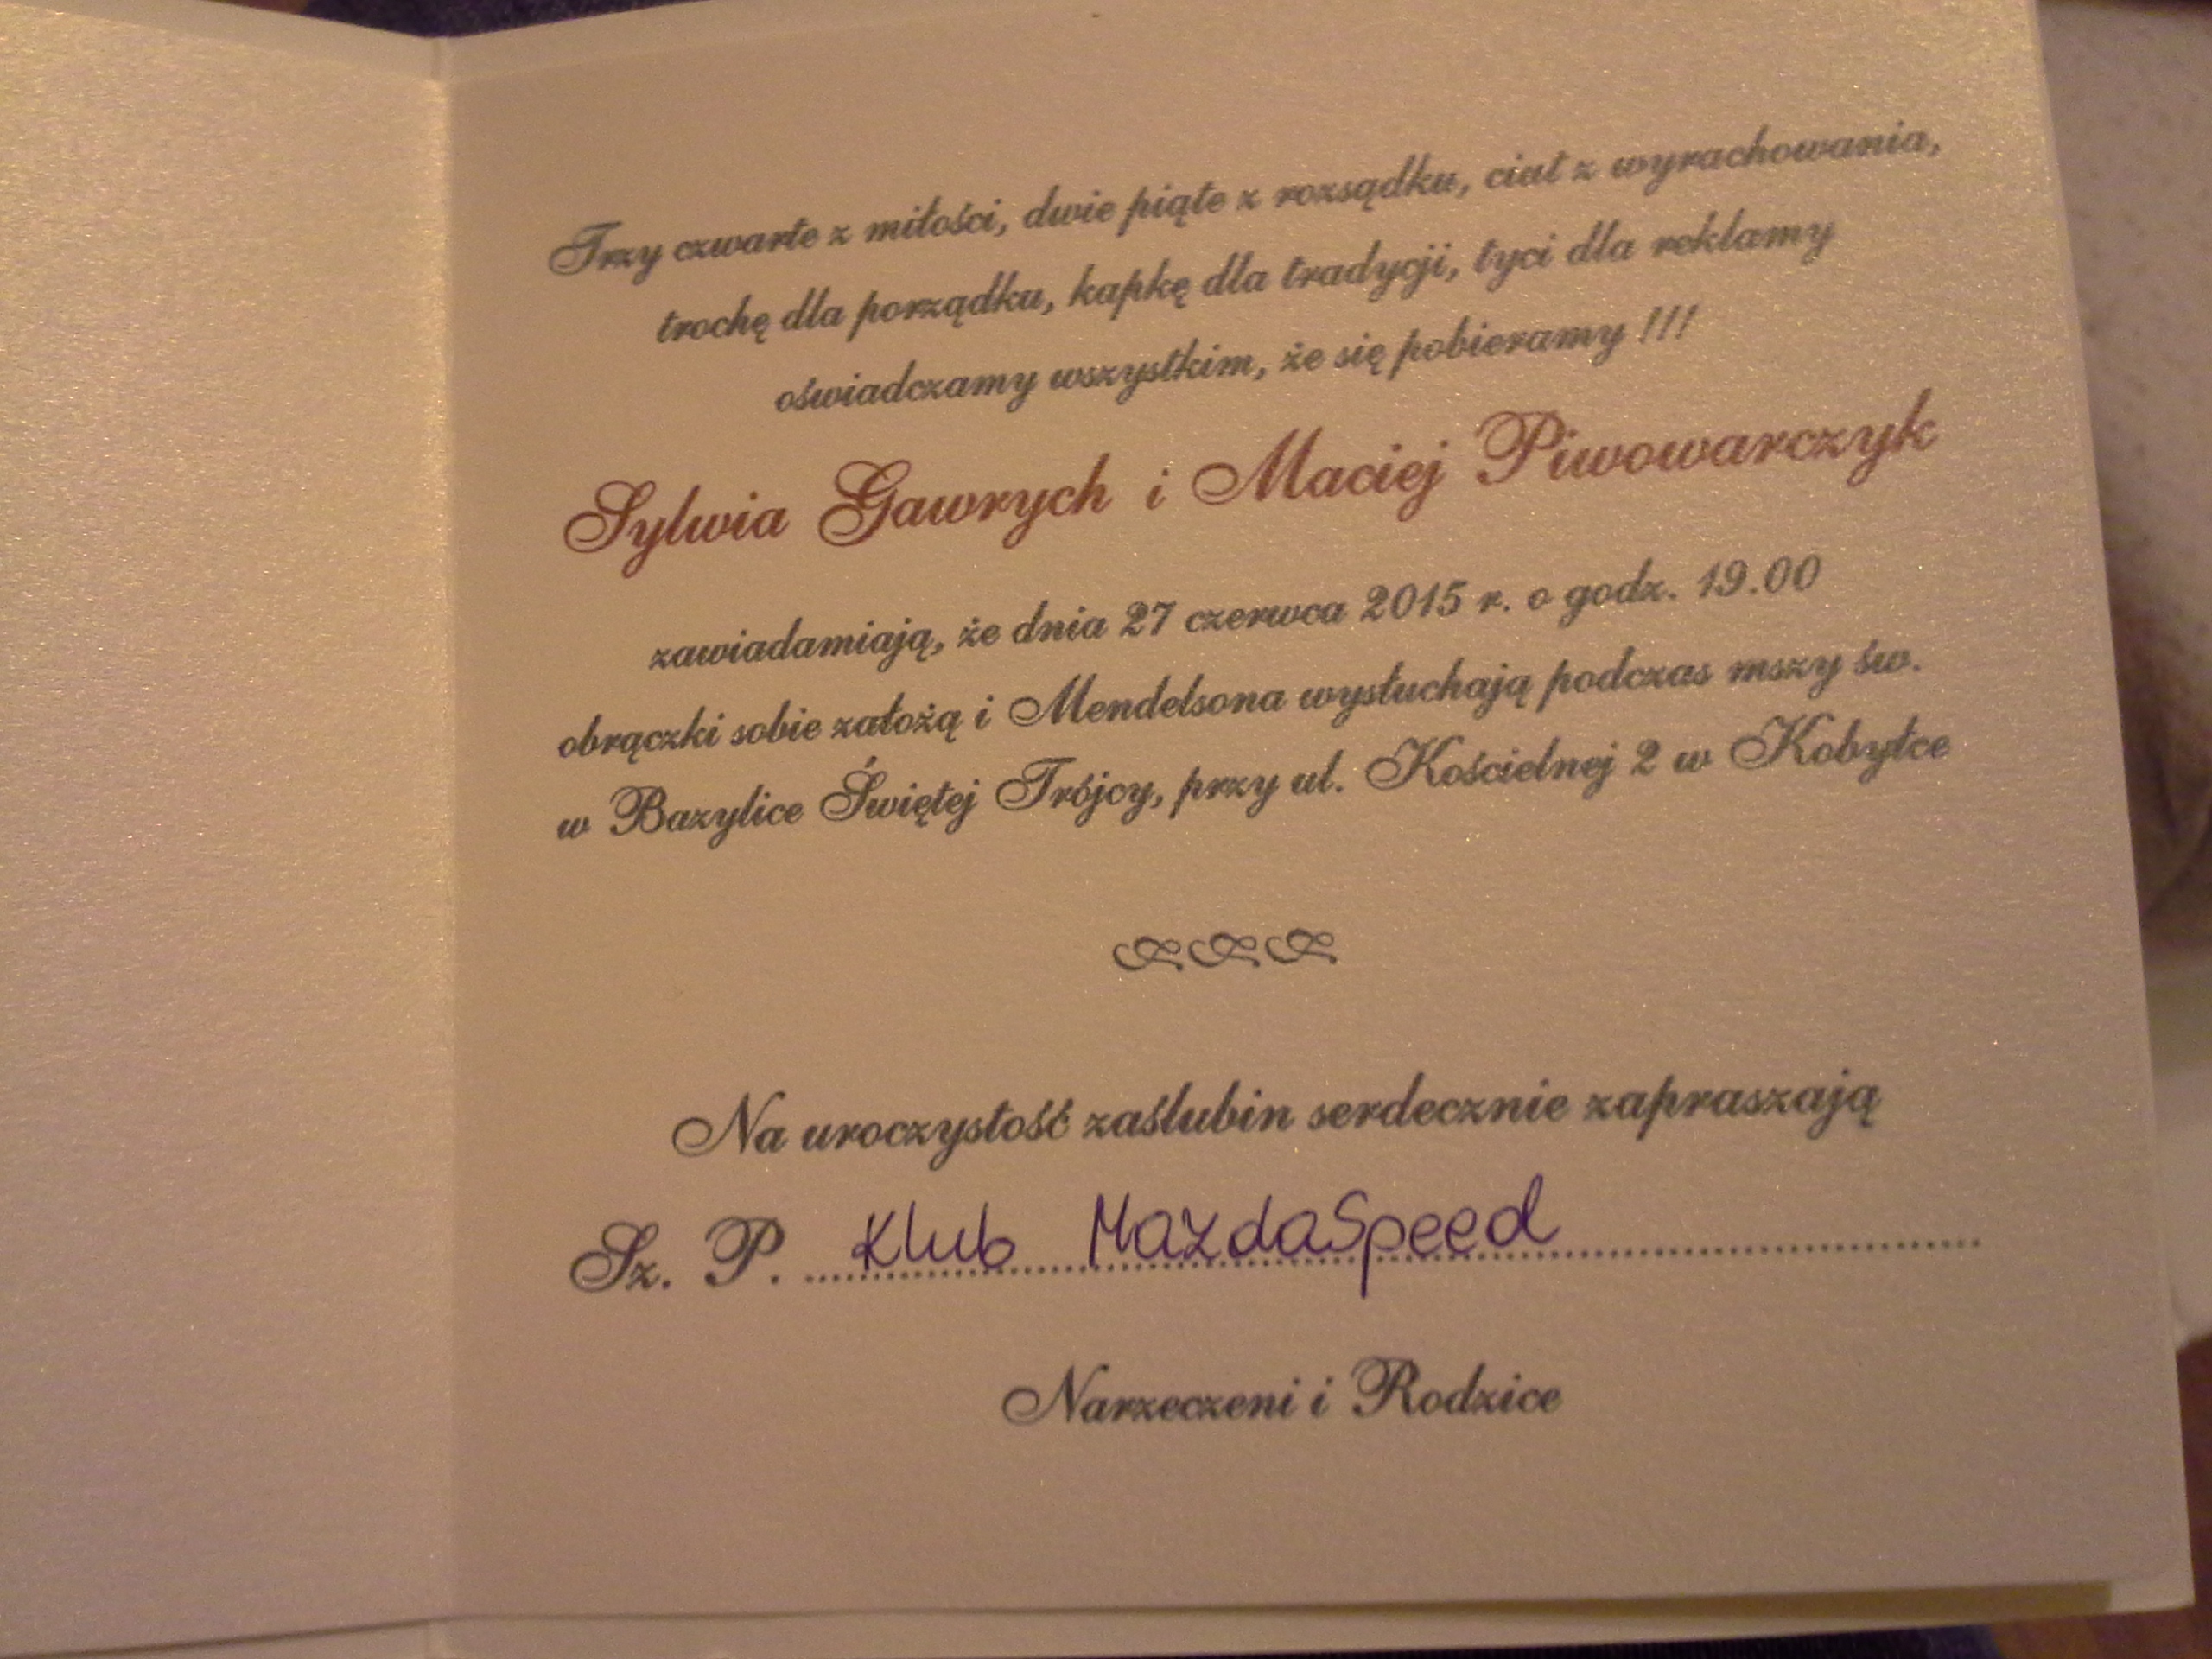 Trzy czwarte z miłości, dwie piąte z rozsądku, ciut z wyrachowania,
trochę dla porządku, kapkę dla tradycji, tyci dla reklamy
oświadczamy wszystkim, że się pobieramy !!!
Sylwia Gawrych i Maciej Piwowarczyk
zawiadamiają, że dnia 27 czerwca 2015 r. o godz. 19.00
obrączki sobie założą i Mendelsona wysłuchają podczas mszy św.
w Bazylice Świętej Trójcy, przy ul. Kościelnej 2 w Kobyłce
Na uroczystość zaślubin serdecznie zapraszają
Sz. P. Klub MazdaSpeed
Narzeczeni i Rodzice